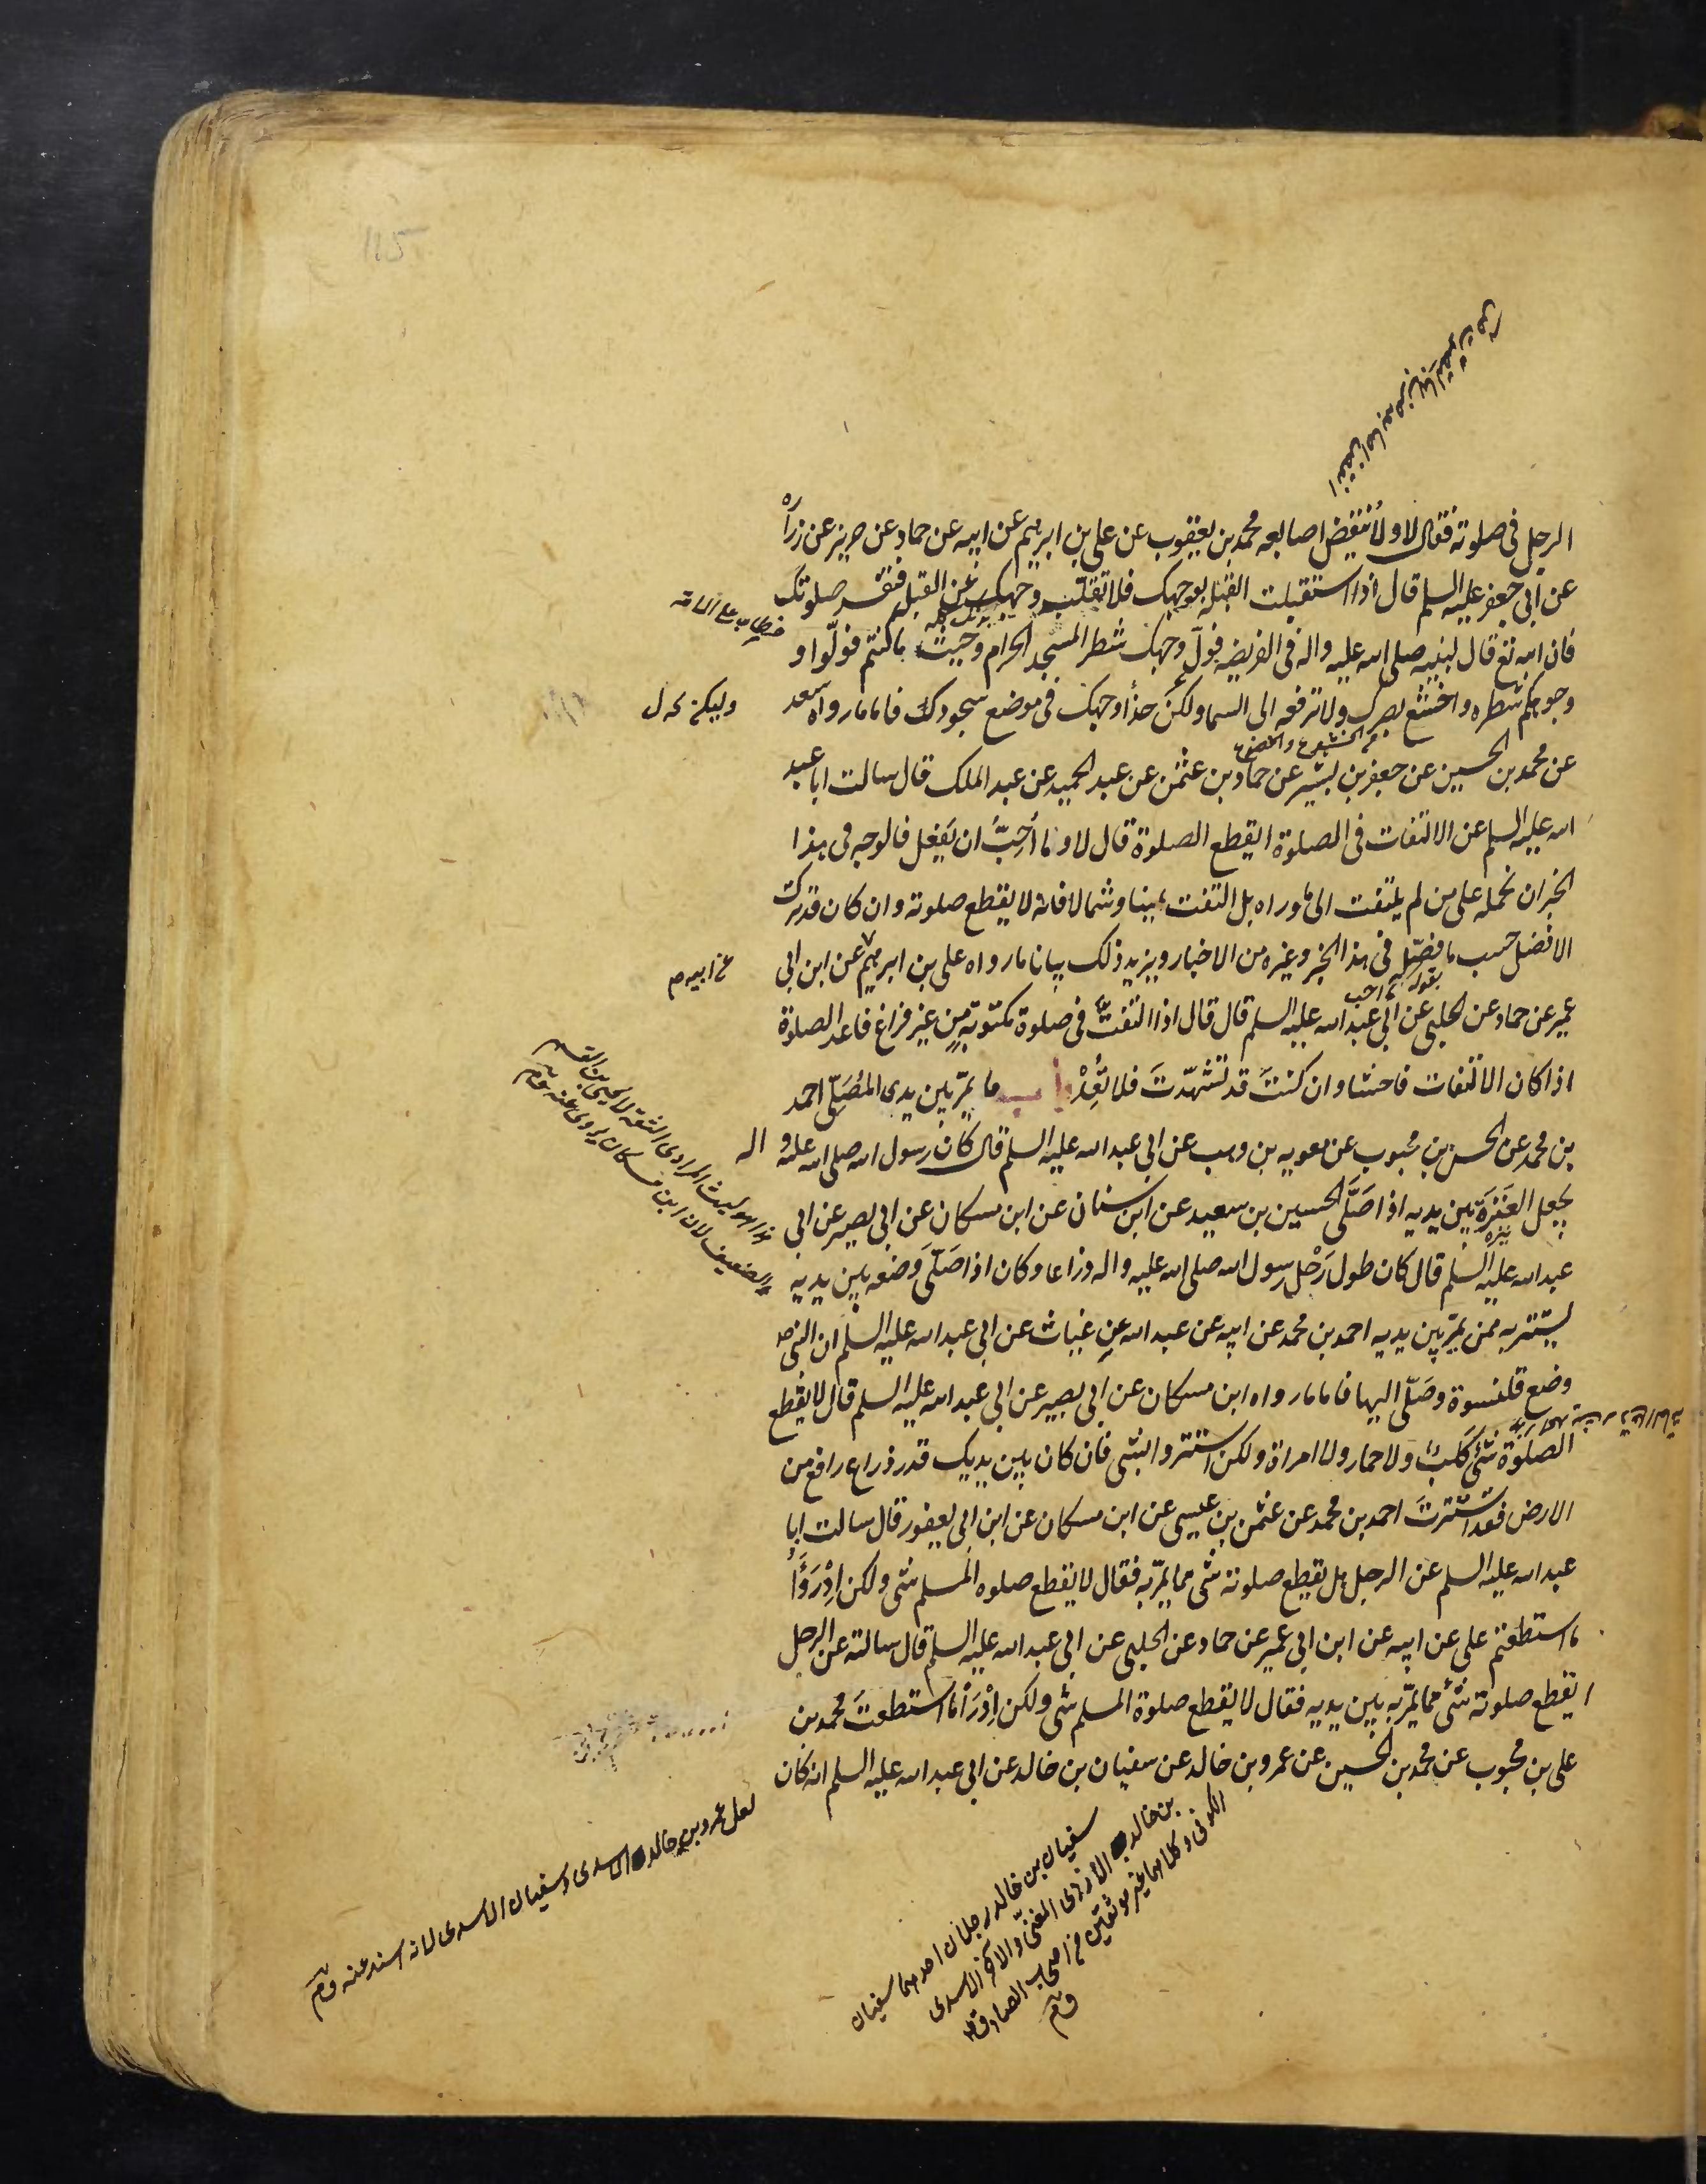 115
الرجل فى صلوته فقال لا ولا ينقض اصابعه محمد بن يعقوب عن على بن ابرهيم عن ابيه عن حماد عن حريز عن زرارة
عن ابى جعفر عليه السلم قال اذا استقبلت القبلة بوجهك فلا تقلب وجهك عن القبلة فتفسد صلوتك
فان الله تع قال لنبيه صلى الله عليه واله فى الفريضة فول وجهك شطر المسجد الحرام وحيث ما كنتم فولّوا و
وجوهكم شطره واخشع ببصرك ولا ترفعه الى السما وليكن حذأ وجهك فى موضع سجودك فاما ما رواه سعد
من الخشوع والخضوع
عن محمد بن الحسين عن جعفر بن بشير عن حماد بن عثمن عن عبد الحميد عن عبد الملك قال سالت ابا عبد
الله عليه السلم عن الالتفات فى الصلوة ايقطع الصلوة قال لا وما أُحِبُّ ان يَفعل فالوجه فى هذا
الخبر ان نحمله على من لم يلتفت الى ما وراه بل التفت يمينا وشمالا فانه لا يقطع صلوته وان كان قد ترك
الافضل حسب ما فصّل فى هذا الخبر وغيره من الاخبار ويزيد ذلك بيانا ما رواه على بن ابرهيم عن ابن ابى
بقوله ما احب
عن ابيه م
عمير عن حماد عن الحلبى عن ابى عبد الله عليه السلم قال قال اذا التفتَّ فى صلوة مكتوبةٍ من غير فراغ فاعد الصلوة
اذا كان الالتفات فاحشا وان كنتَ قد تشهّدتَ فلا تُعِدْ باب ما يمرّ بين يدى المُصَلّى احمد
بن محمد عن الحسن بن محبوب عن معوية بن وهب عن ابى عبد الله عليه السلم قال كان رسول الله صلى الله عليه و اله
يجعل العَنَزَةَ بين يديه اذا صَلَّى الحسين بن سعيد عن ابن سنان عن ابن مسكان عن ابى بصير عن ابى
عبد الله عليه السلم قال كان طول رَحْلِ رسول الله صلى الله عليه واله ذراعا وكان اذا صَلّى وَضعه بين يديه
يستتر به ممن يمرّ بين يديه احمد بن محمد عن ابيه عن عبد الله عن غياث عن ابى عبد الله عليه السلم ان النبى ص
وضع قلنسوة وصَلّى اليها فاما ما رواه ابن مسكان عن ابى بصير عن ابى عبد الله عليه السلم قال لا يقطع
الصلوةَ شئٌ كَلبٌ ولا حمار ولا امراة ولكن استتروا بشى فان كان بين يديك قدر ذراع رافع من
الارض فقد استترتَ احمد بن محمد عن عثمن بن عيسى عن ابن مسكان عن ابن ابى يعفور قال سالت ابا
عبد الله عليه السلم عن الرجل هل يقطع صلوته شى مما يمرّ به فقال لا يقطع صلوه المسلم شى ولكن اِدْرَؤُا
ما استطعتم على عن ابيه عن ابن ابى عمير عن حماد عن الحلبى عن ابى عبد الله عليه السلم قال سالته عن الرجل
ايقطع صلوته شئ مما يمرّ به بين يديه فقال لا يقطع صلوة المسلم شى ولكن اِدْرَأْ ما استطعتَ محمد بن
على بن محبوب عن محمد بن الحسين عن عمرو بن خالد عن سفيان بن خالد عن ابى عبد الله عليه السلم انه كان
سفيان بن خالد رجلان احدهما سفيان
بن خالد الازدى والاخر الاسدى
الكوفى وكلاهما غير موثقين من اصحاب الصادق
لعل عمرو بن خالد الاسدى وسفيان الاسدى لانه اسند عنه